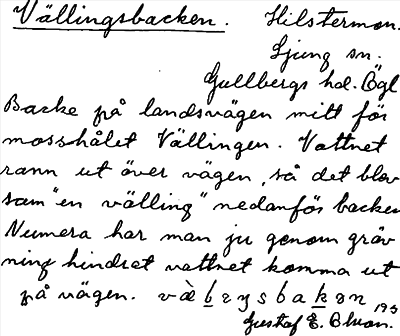 Vällingsbacken. Hilstermon.
Ljung sn.
Gullbergs hd. Ögl
Backe på landsvägen mitt för
mosshålet Vällingen. Vattnet
rann ut över vägen, så det blev
som "en välling" nedanför backen
Numera har man ju genom gräv
ning hindrat vattnet komma ut
på vägen.
Gustaf E.